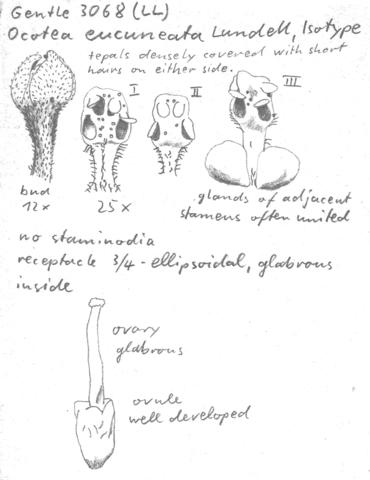 Gentle 3068 (LL)
Ocotea eucuneata Lundell, Isotype
tepals densely covered with short
hairs on either side.
I
II
III
bud
12x
25x
glands of adjacent
stamens often united
no staminodia
receptacle 3/4-ellipsoidal, glabrous
inside
ovary
glabrous
ovule
well developed